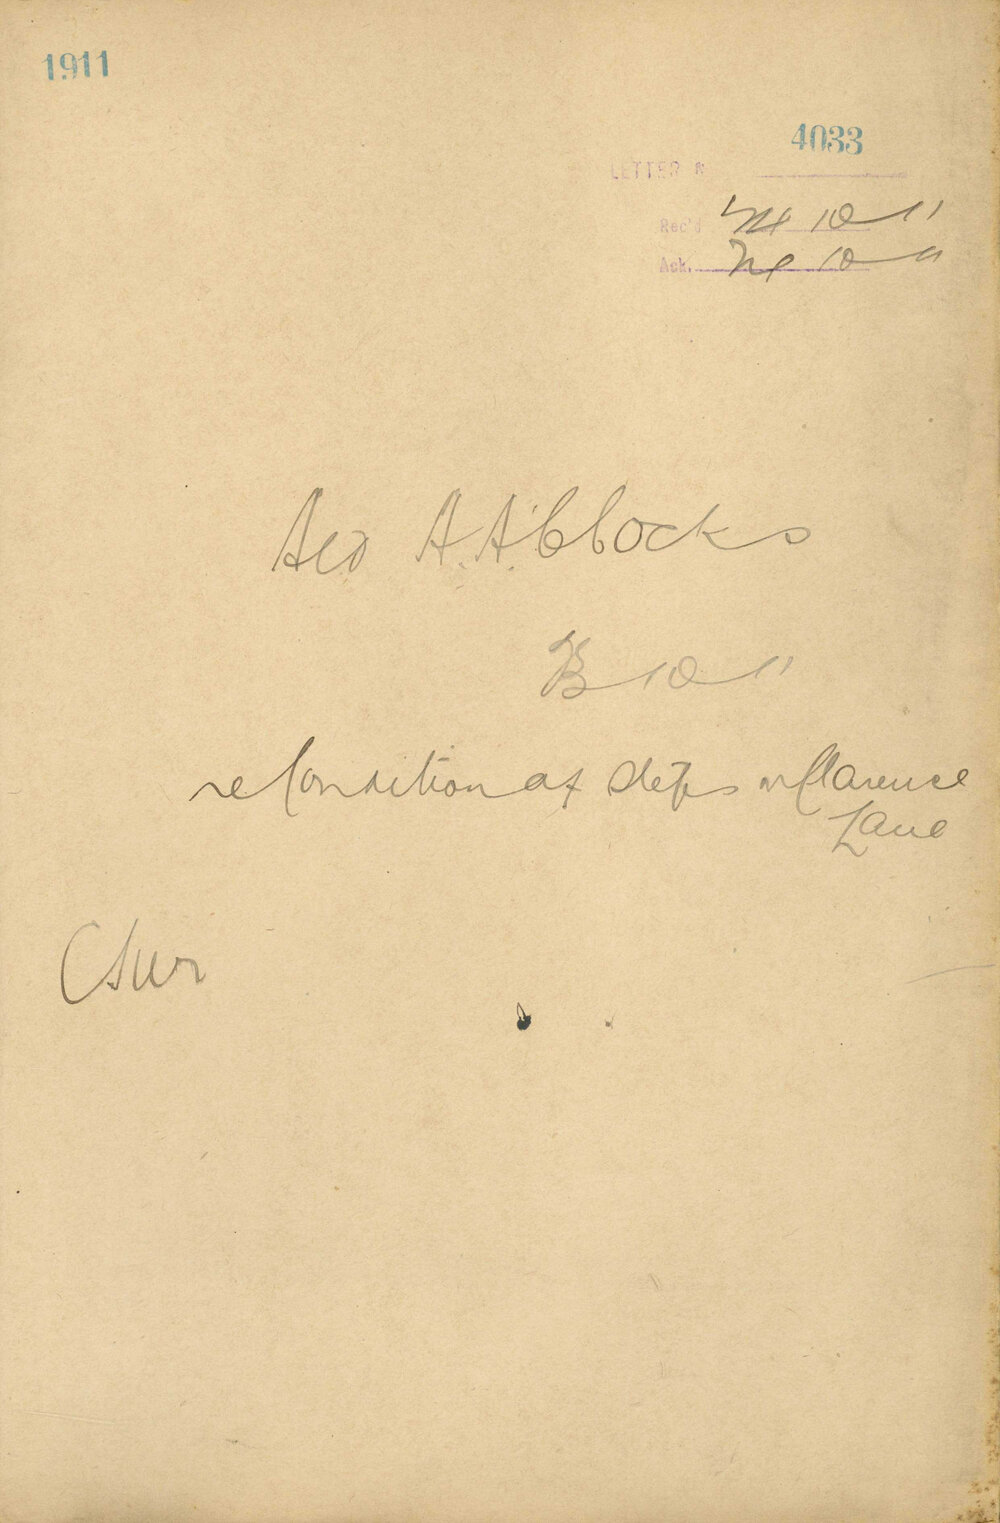 1911
4033
LETTER №
Rec'd 24 10 11
Ack. 10 11
Geo A. A.
10 11
re Condition of Steps in Clarence
Lane
C Sur